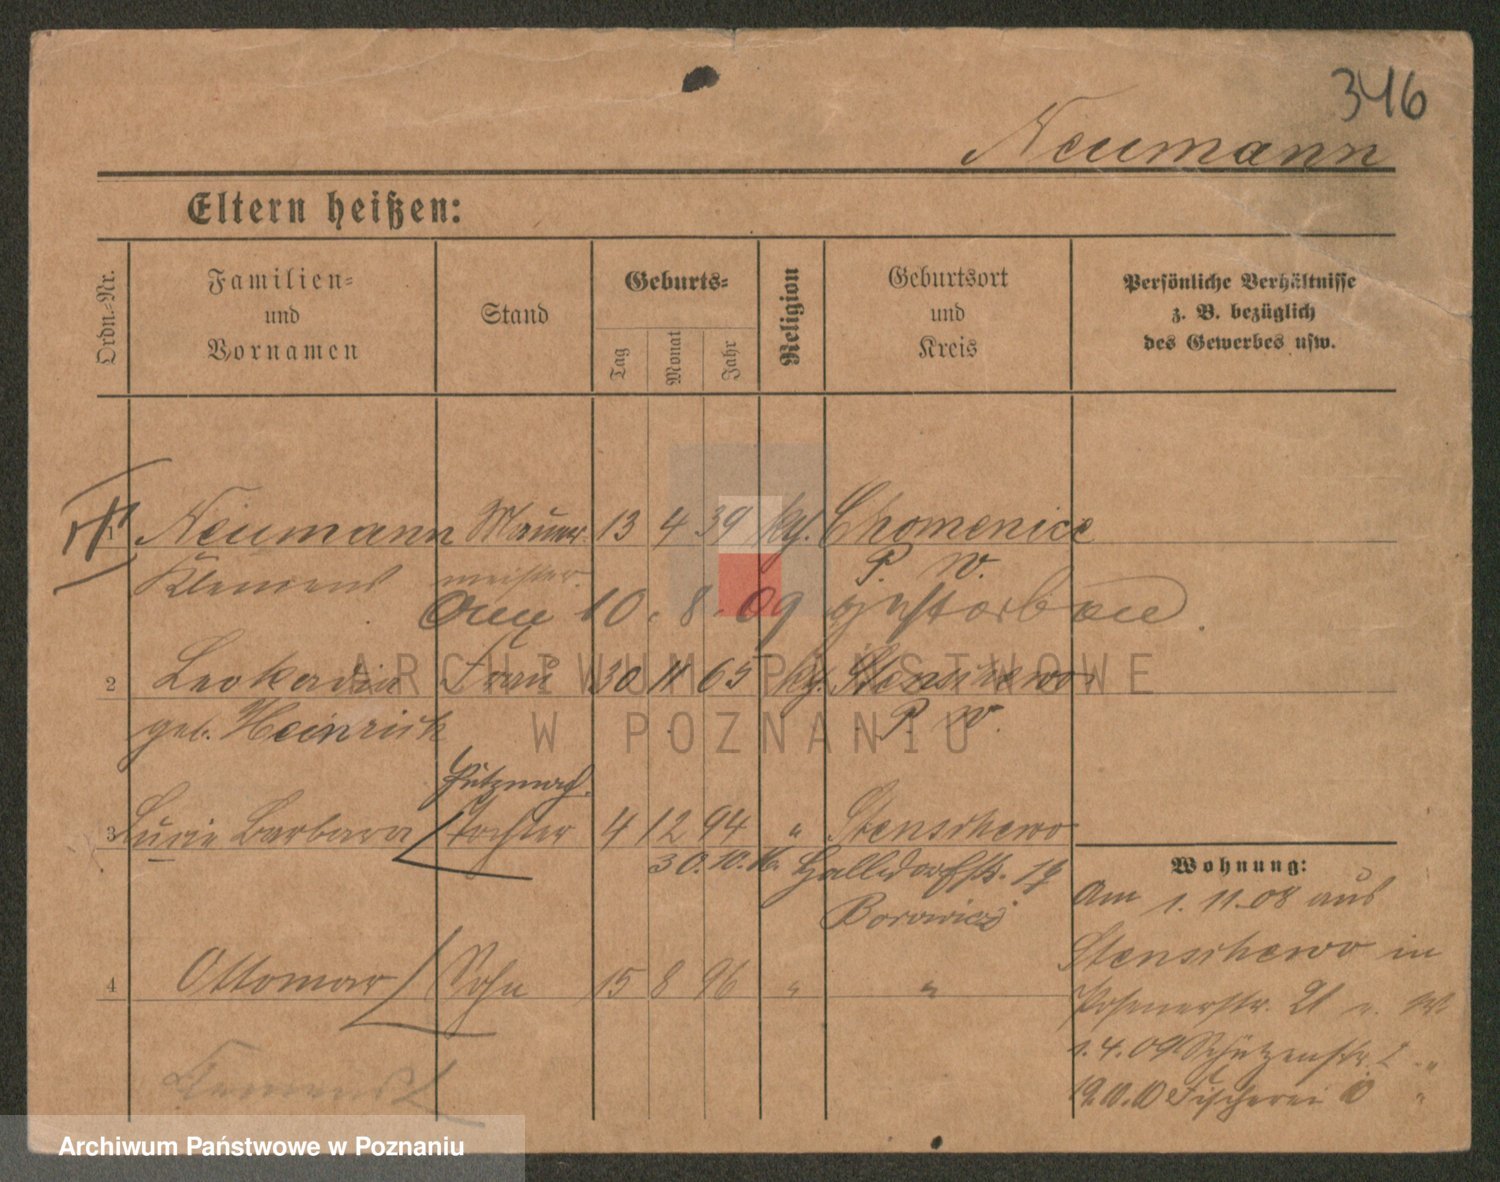 346
Neumann
Eltern heißen:
Ordn.-Nr.
Familien- und Vornamen
Stand
Geburts-
Tag
Monat
Jahr
Religion
Geburtsort und Kreis
Persönliche Verhältnisse z. B. bezüglich des Gewerbes usw.
1 Neumann Maurer- 13 4 39 kg. Chomenice
Klemens meister P. W.
Am 10. 8. 09 gestorben.
2 Leokadia Frau 30 11 65 kg. Stenschewo
geb. Heinrich P. W.
Putzmach.
3 Lucie Barbara Tochter 4 12 94 " Stenschewo
30. 10. 16. Halldorfstr. 17
Borowicz
4 Ottomar Sohn 15 8 96 " "
Klemens
Wohnung:
Am 1. 11. 08 aus
Stenschewo in
Posenerstr. 21
1. 4. 09 Schützenstr. "
Fischerei "
ARCHIWUM PAŃSTWOWE
W POZNANIU
Archiwum Państwowe w Poznaniu